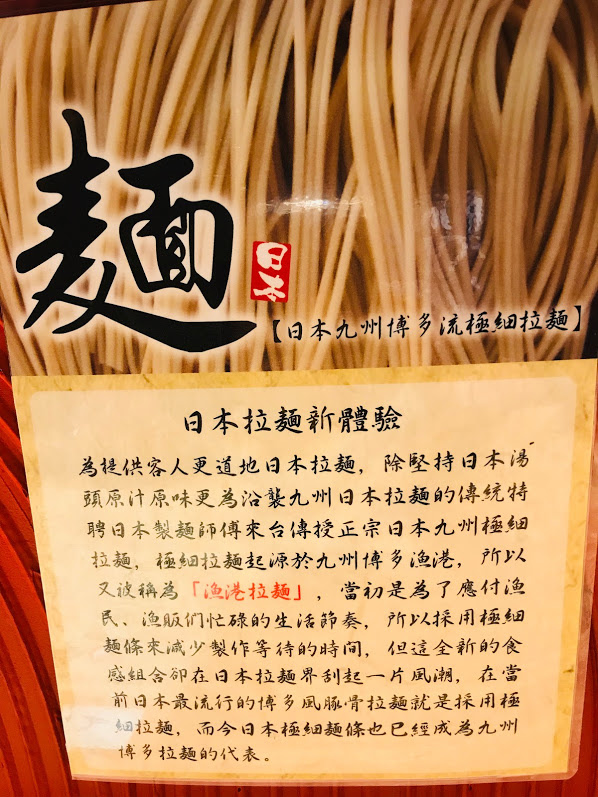 麵
日本
【日本九州博多流極細拉麵】
日本拉麵新體驗
為提供客人更道地日本拉麵，除堅持日本湯
頭原汁原味更為沿襲九州日本拉麵的傳統特
聘日本製麵師傅來台傳授正宗日本九州極細
拉麵，極細拉麵起源於九州博多漁港，所以
又被稱為「漁港拉麵」，當初是為了應付漁
民、漁販們忙碌的生活節奏，所以採用極細
麵條來減少製作等待的時間，但這全新的食
感組合卻在日本拉麵界刮起一片風潮，在當
前日本最流行的博多風豚骨拉麵就是採用極
細拉麵，而今日本極細麵條也已經成為九州
博多拉麵的代表。